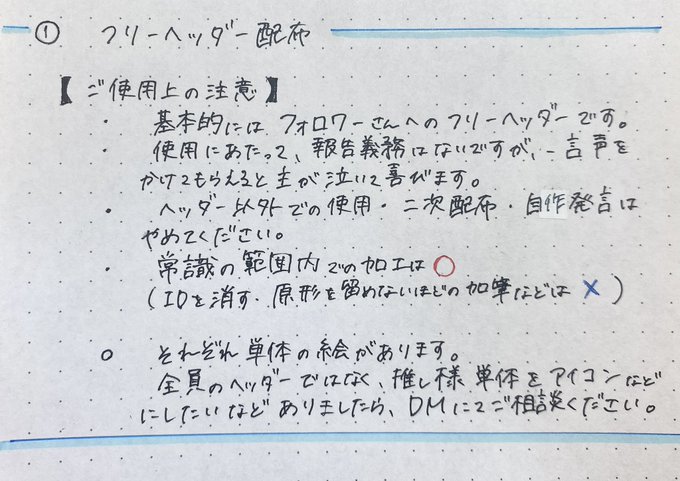 ① フリーヘッダー配布
【ご使用上の注意】
・ 基本的にはフォロワーさんへのフリーヘッダーです。
・ 使用にあたって、報告義務はないですが、一言声を
かけてもらえると主が泣いて喜びます。
・ ヘッダー以外での使用・二次配布・自作発言は
やめてください。
・ 常識の範囲内での加工は○
(IDを消す・原形を留めないほどの加筆などは×)
○ それぞれ単体の絵があります。
全員のヘッダーではなく、推し様単体をアイコンなど
にしたいなどありましたら、DMにてご相談ください。